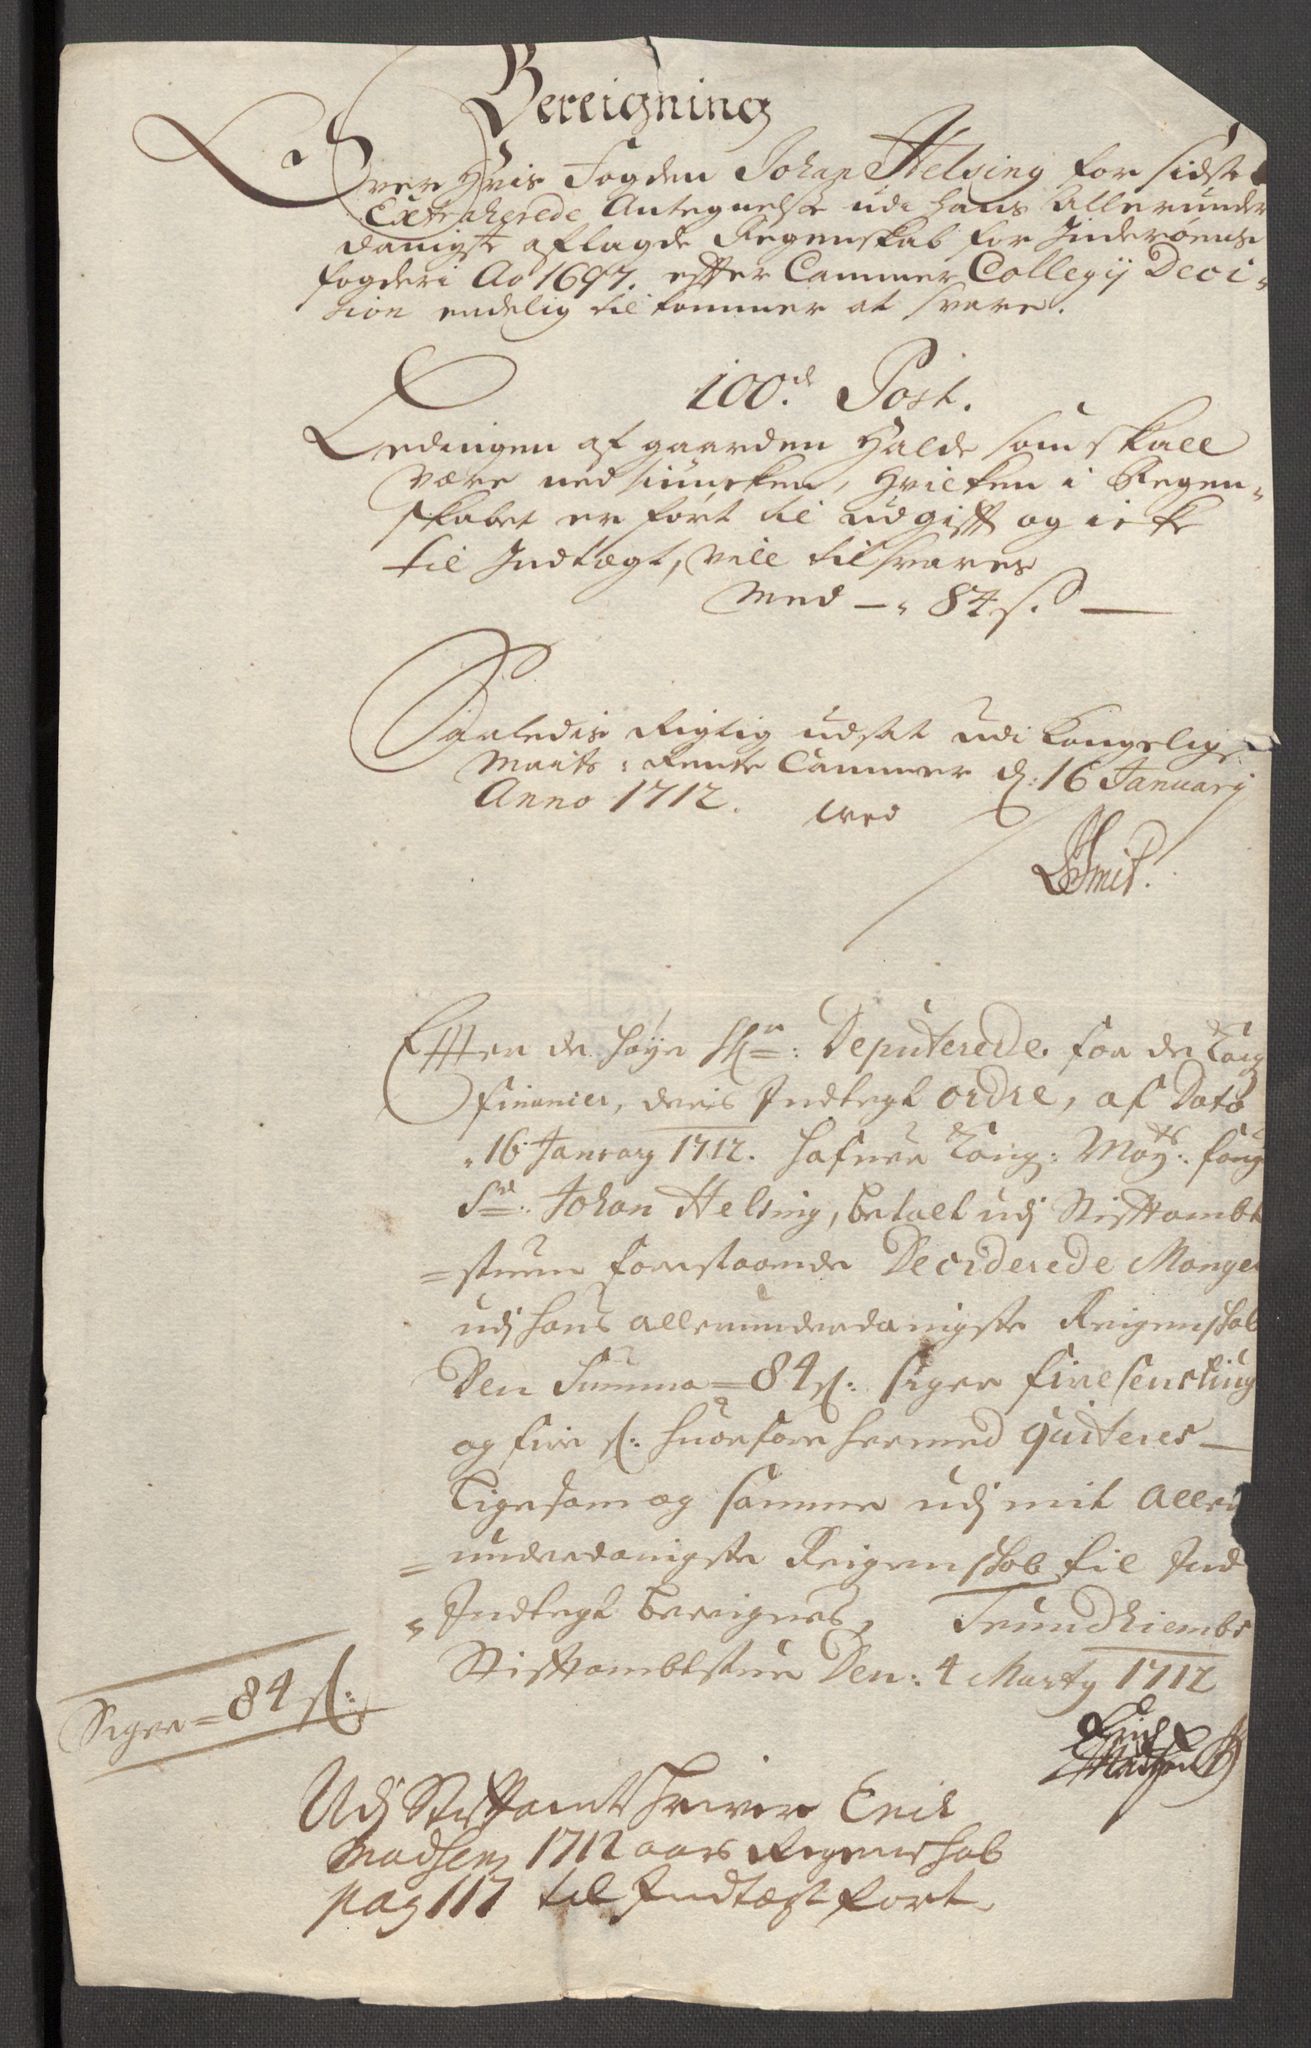 Bereigning
Over Hvis Fogden Johan Helsing for sidste
Extraherede Antegnelse udi hans Allerunder
danigste aflagde Regenskab for Inderøens
fogderi Ao 1697. efter Cammer Collegij Deci-
sion endelig tilkommer at svare.
100.de Post.
Ledingen af gaarden Halde som skall
være nedsiuncken, hvilken i Regen-
skabet er ført til udgift og icke
til Indtægt, vill tilsvares
med — 84 s. —
Saaledis Rigtig udset udi Kongelig
Maits: Rente Cammer d: 16 January
Anno 1712. ved
Smit.
Effter de høye Hrr: Deputerede for de Kong
Financier, deris Indlegt ordre, af Dato
16 January 1712. hafuer Kong: May:ts foug
Sr: Johan Helsing, betalt udj Stifftambt
=stuen forestaaende Deciderede Mangel
udj hans allerunderdanigste Reigenskab
Den Summa = 84 s: siger firesenstiug
og fire s: huorfore hermed quiteres —
Ligesom og samme udj mit Aller
=underdanigste Reigenskab til Ind
Indtegt bereignes, Trundhiembs
Stifftambtstue Den: 4 Marty 1712
Siger = 84 s:
Erich
Madsen
Udj Stiftamtskriver Erik
Madsen 1712 aars Regenskab
pag 117 til Indtægt ført